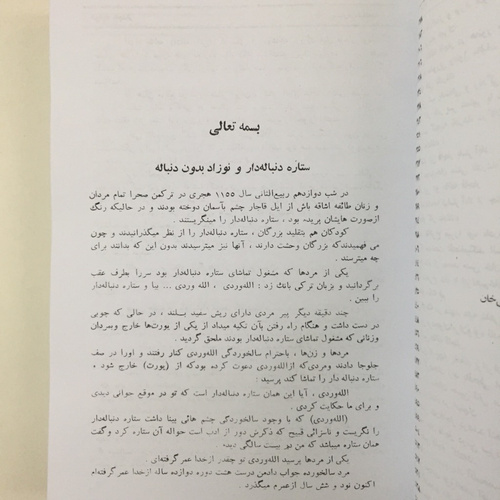 بسمه تعالی
ستاره دنباله‌دار و نوزاد بدون دنباله
در شب دوازدهم ربیع‌الثانی سال ۱۱۵۵ هجری در ترکمن صحرا تمام مردان
و زنان طائفه اشاقه باش از ایل قاجار چشم بآسمان دوخته بودند و در حالیکه رنگ
ازصورت هایشان پریده بود ، ستاره دنباله‌دار را مینگریستند .
کودکان هم بتقلید بزرگان ، ستاره دنباله‌دار را از نظر میگذرانیدند و چون
می فهمیدندکه بزرگان وحشت دارند ، آنها نیز میترسیدند بدون این که بدانند برای
چه میترسند .
یکی از مردها که مشغول تماشای ستاره دنباله‌دار بود سررا بطرف عقب
برگردانید و بزبان ترکی بانك زد : الله‌وردی ، الله وردی ... بیا و ستاره دنباله‌دار را
ببین .
چند دقیقه دیگر پیر مردی دارای ریش سفید بلند ، در حالی که چوبی
در دست داشت و هنگام راه رفتن بآن تکیه میداد از یکی از یورت‌ها خارج وبمردان
وزنانی که مشغول تماشای ستاره دنباله‌دار بودند ملحق گردید .
مردها و زن‌ها ، باحترام سالخوردگی الله‌وردی کنار رفتند و اورا در صف
جلوجا دادند ومردی‌که ازالله‌وردی دعوت کرده بودکه از (یورت) خارج شود ،
ستاره دنباله دار را تماشا کند پرسید :
الله‌وردی ، آیا این همان ستاره دنباله‌دار است که تو در موقع جوانی دیدی
و برای ما حکایت کردی .
(الله‌وردی) که با وجود سالخوردگی چشم هائی بینا داشت ستاره دنباله‌دار
را نگریست و ناسزائی قبیح که ذکرش دور از ادب است حواله آن ستاره کرد وگفت
همان ستاره میباشد که من در بیست سالگی دیدم .
یکی از مردها پرسید الله‌وردی تو چقدر ازخدا عمر گرفته‌ای .
مرد سالخورده جواب دادمن درست هفت دوره دوازده ساله ازخدا عمر گرفته‌ام
اکنون نود و شش سال ازعمرم میگذرد .